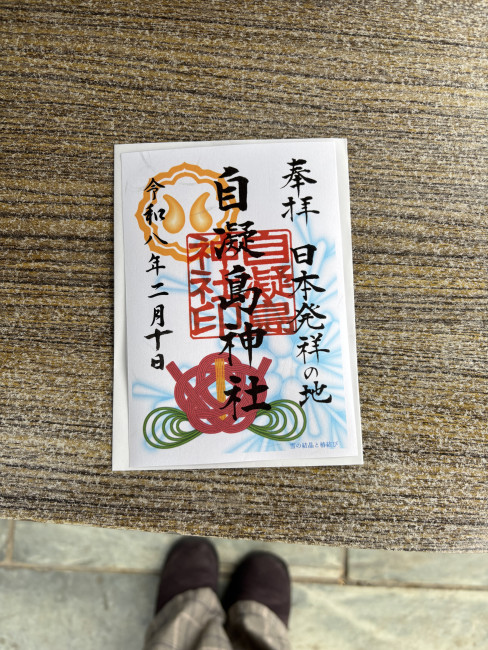 奉拝 日本発祥の地
自凝島神社
自凝島
神社印
令和八年二月十日
雪の結晶と椿結び